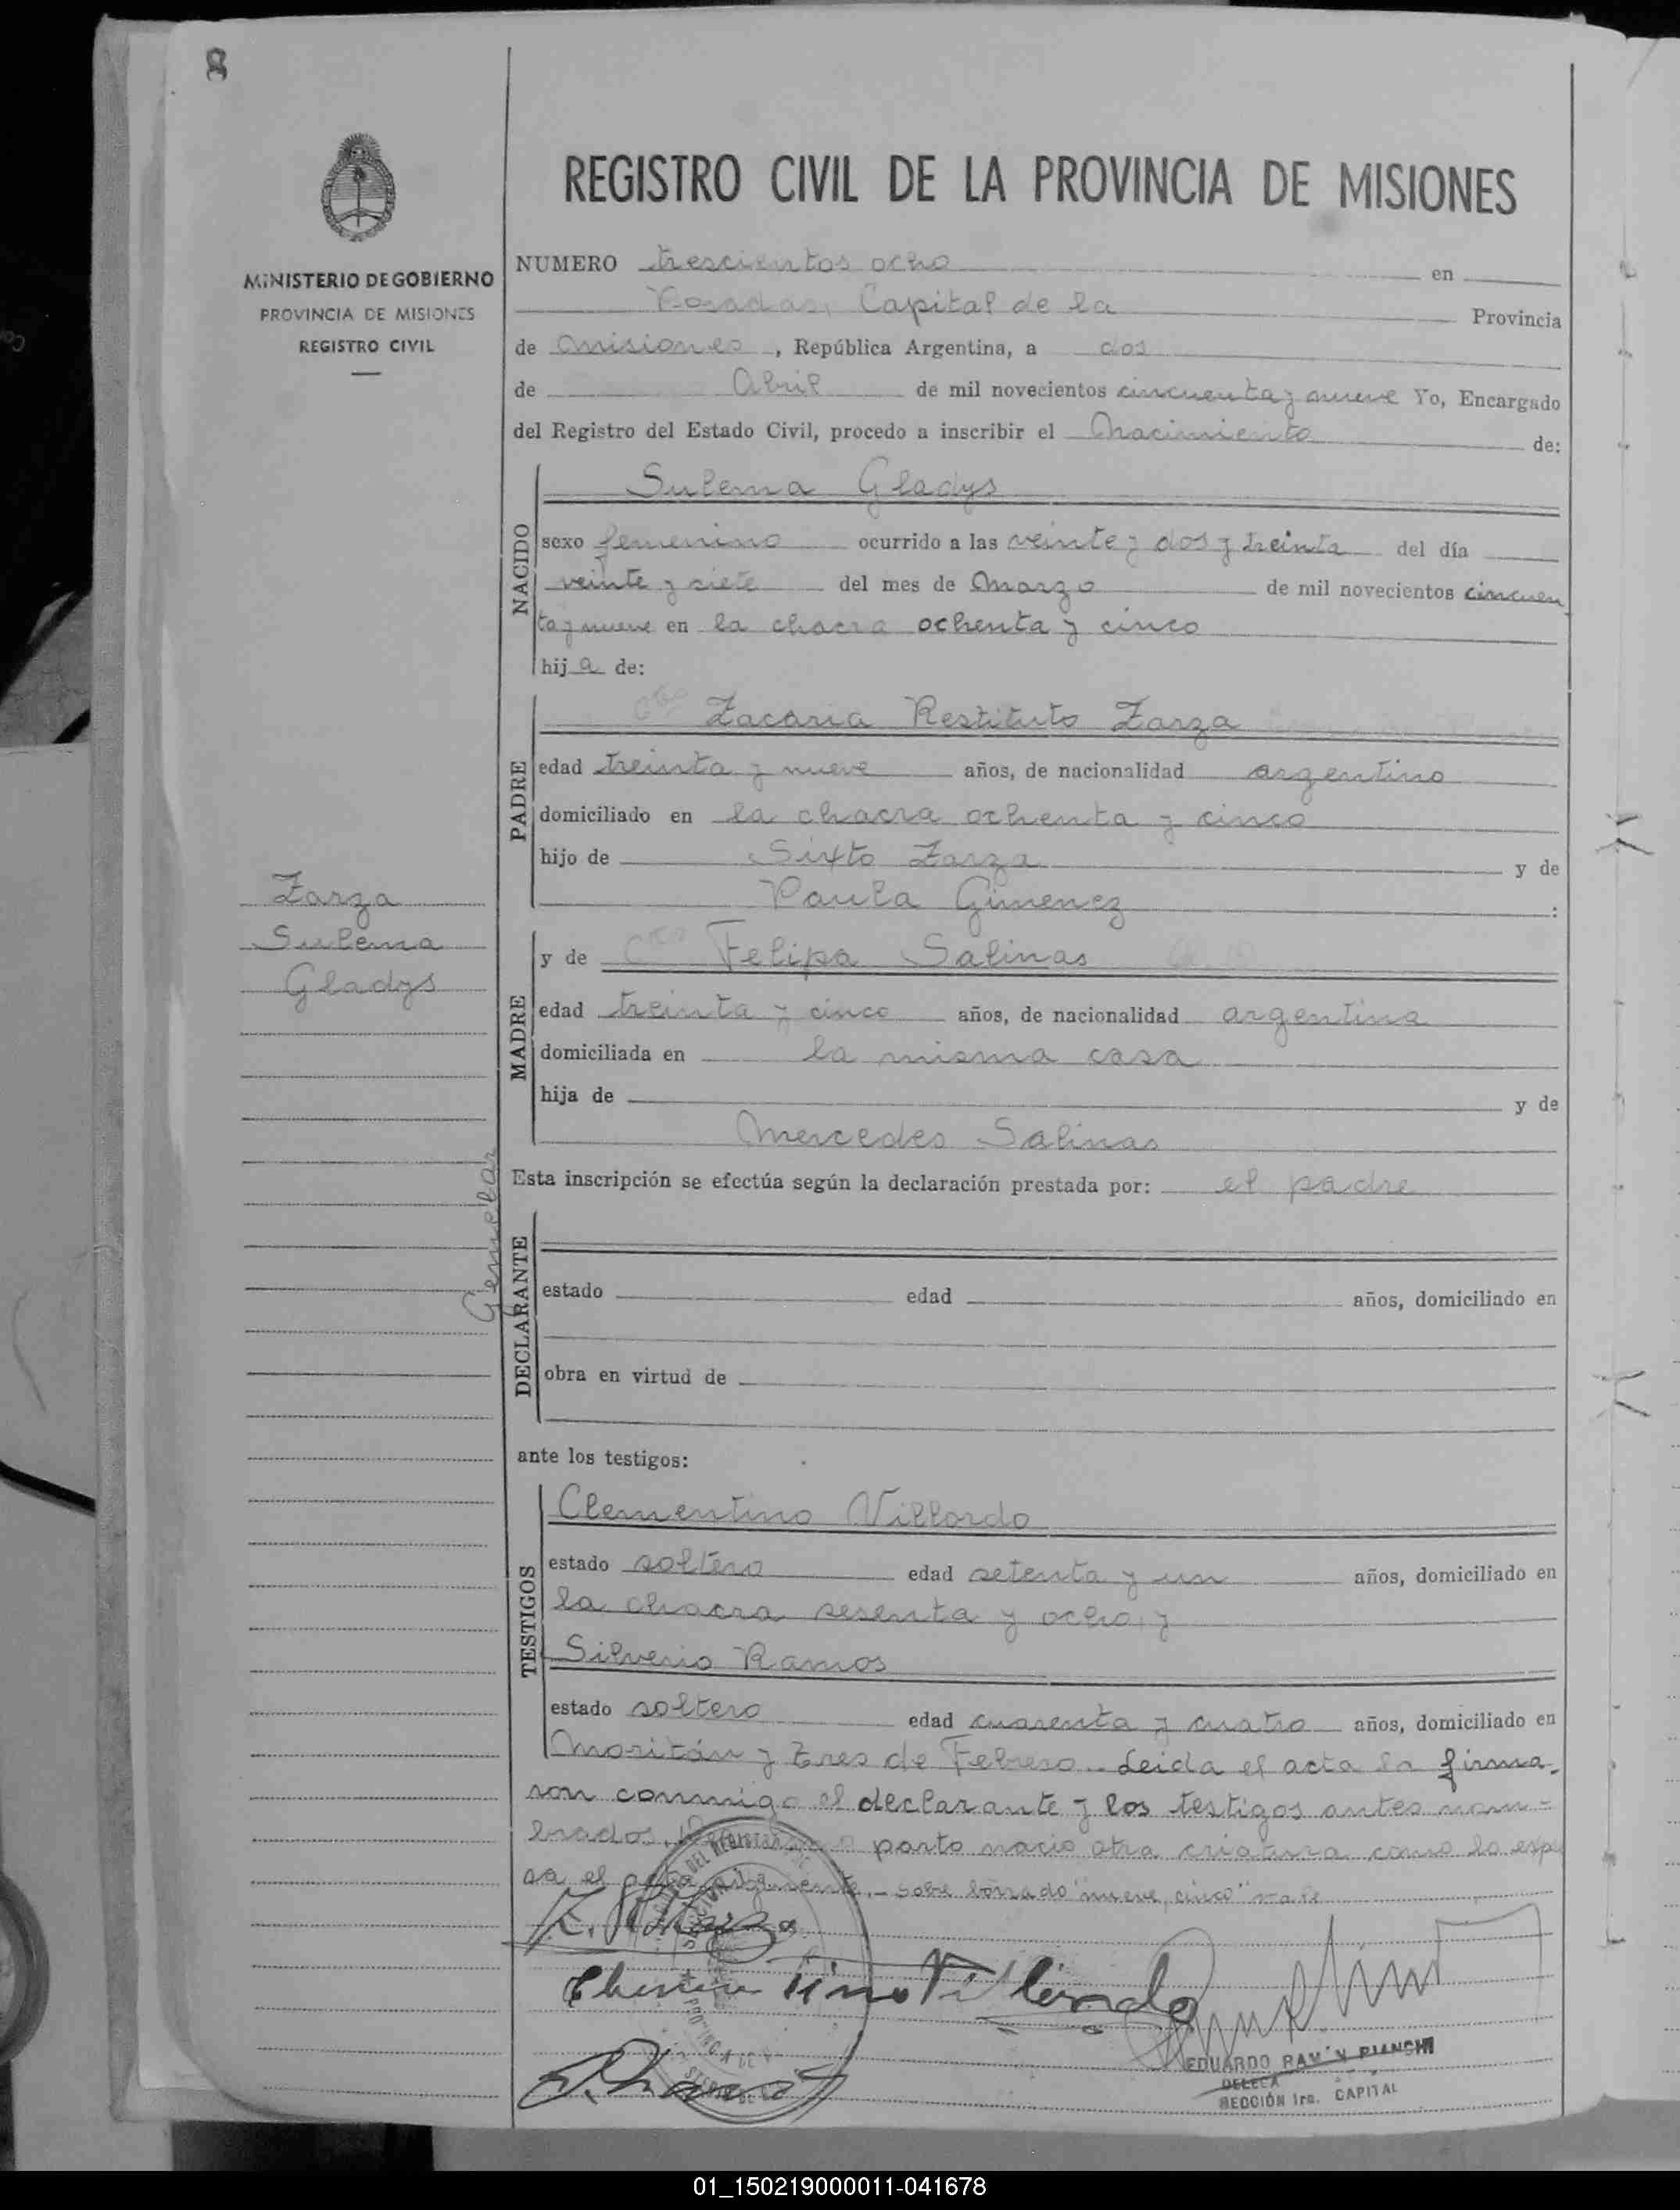 8
REGISTRO CIVIL DE LA PROVINCIA DE MISIONES
MINISTERIO DE GOBIERNO
PROVINCIA DE MISIONES
REGISTRO CIVIL
NUMERO trescientos ocho en
Posadas, Capital de la Provincia
de Misiones, República Argentina, a dos
de Abril de mil novecientos cincuenta y nueve Yo, Encargado
del Registro del Estado Civil, procedo a inscribir el Nacimiento de:
NACIDO
Sulema Gladys
sexo femenino ocurrido a las veinte y dos y treinta del día
veinte y siete del mes de Marzo de mil novecientos cincuen
ta y nueve en la chacra ochenta y cinco
hija de:
PADRE
Zacaria Restituto Zarza
edad treinta y nueve años, de nacionalidad argentino
domiciliado en la chacra ochenta y cinco
hijo de Sixto Zarza y de
Paula Gimenez :
Zarza
Sulema
Gladys
MADRE
y de Felipa Salinas
edad treinta y cinco años, de nacionalidad argentina
domiciliada en la misma casa
hija de y de
Mercedes Salinas
Gemelar
Esta inscripción se efectúa según la declaración prestada por: el padre
DECLARANTE
estado edad años, domiciliado en
obra en virtud de
ante los testigos:
TESTIGOS
Clementino Villordo
estado soltero edad setenta y un años, domiciliado en
la chacra sesenta y ocho, y
Silverio Ramos
estado soltero edad cuarenta y cuatro años, domiciliado en
Moritán y Tres de Febrero.- Leida el acta la firma-
ron conmigo el declarante y los testigos antes nom-
brados. parto nacio otra criatura como lo expre
sa el acta siguiente.- Sobre borrado "nueve, cinco" vale
Z. R. Zarza
Clementino Villordo
EDUARDO RAMON BIANCHI
SECCIÓN 1ra. CAPITAL
01_150219000011-041678